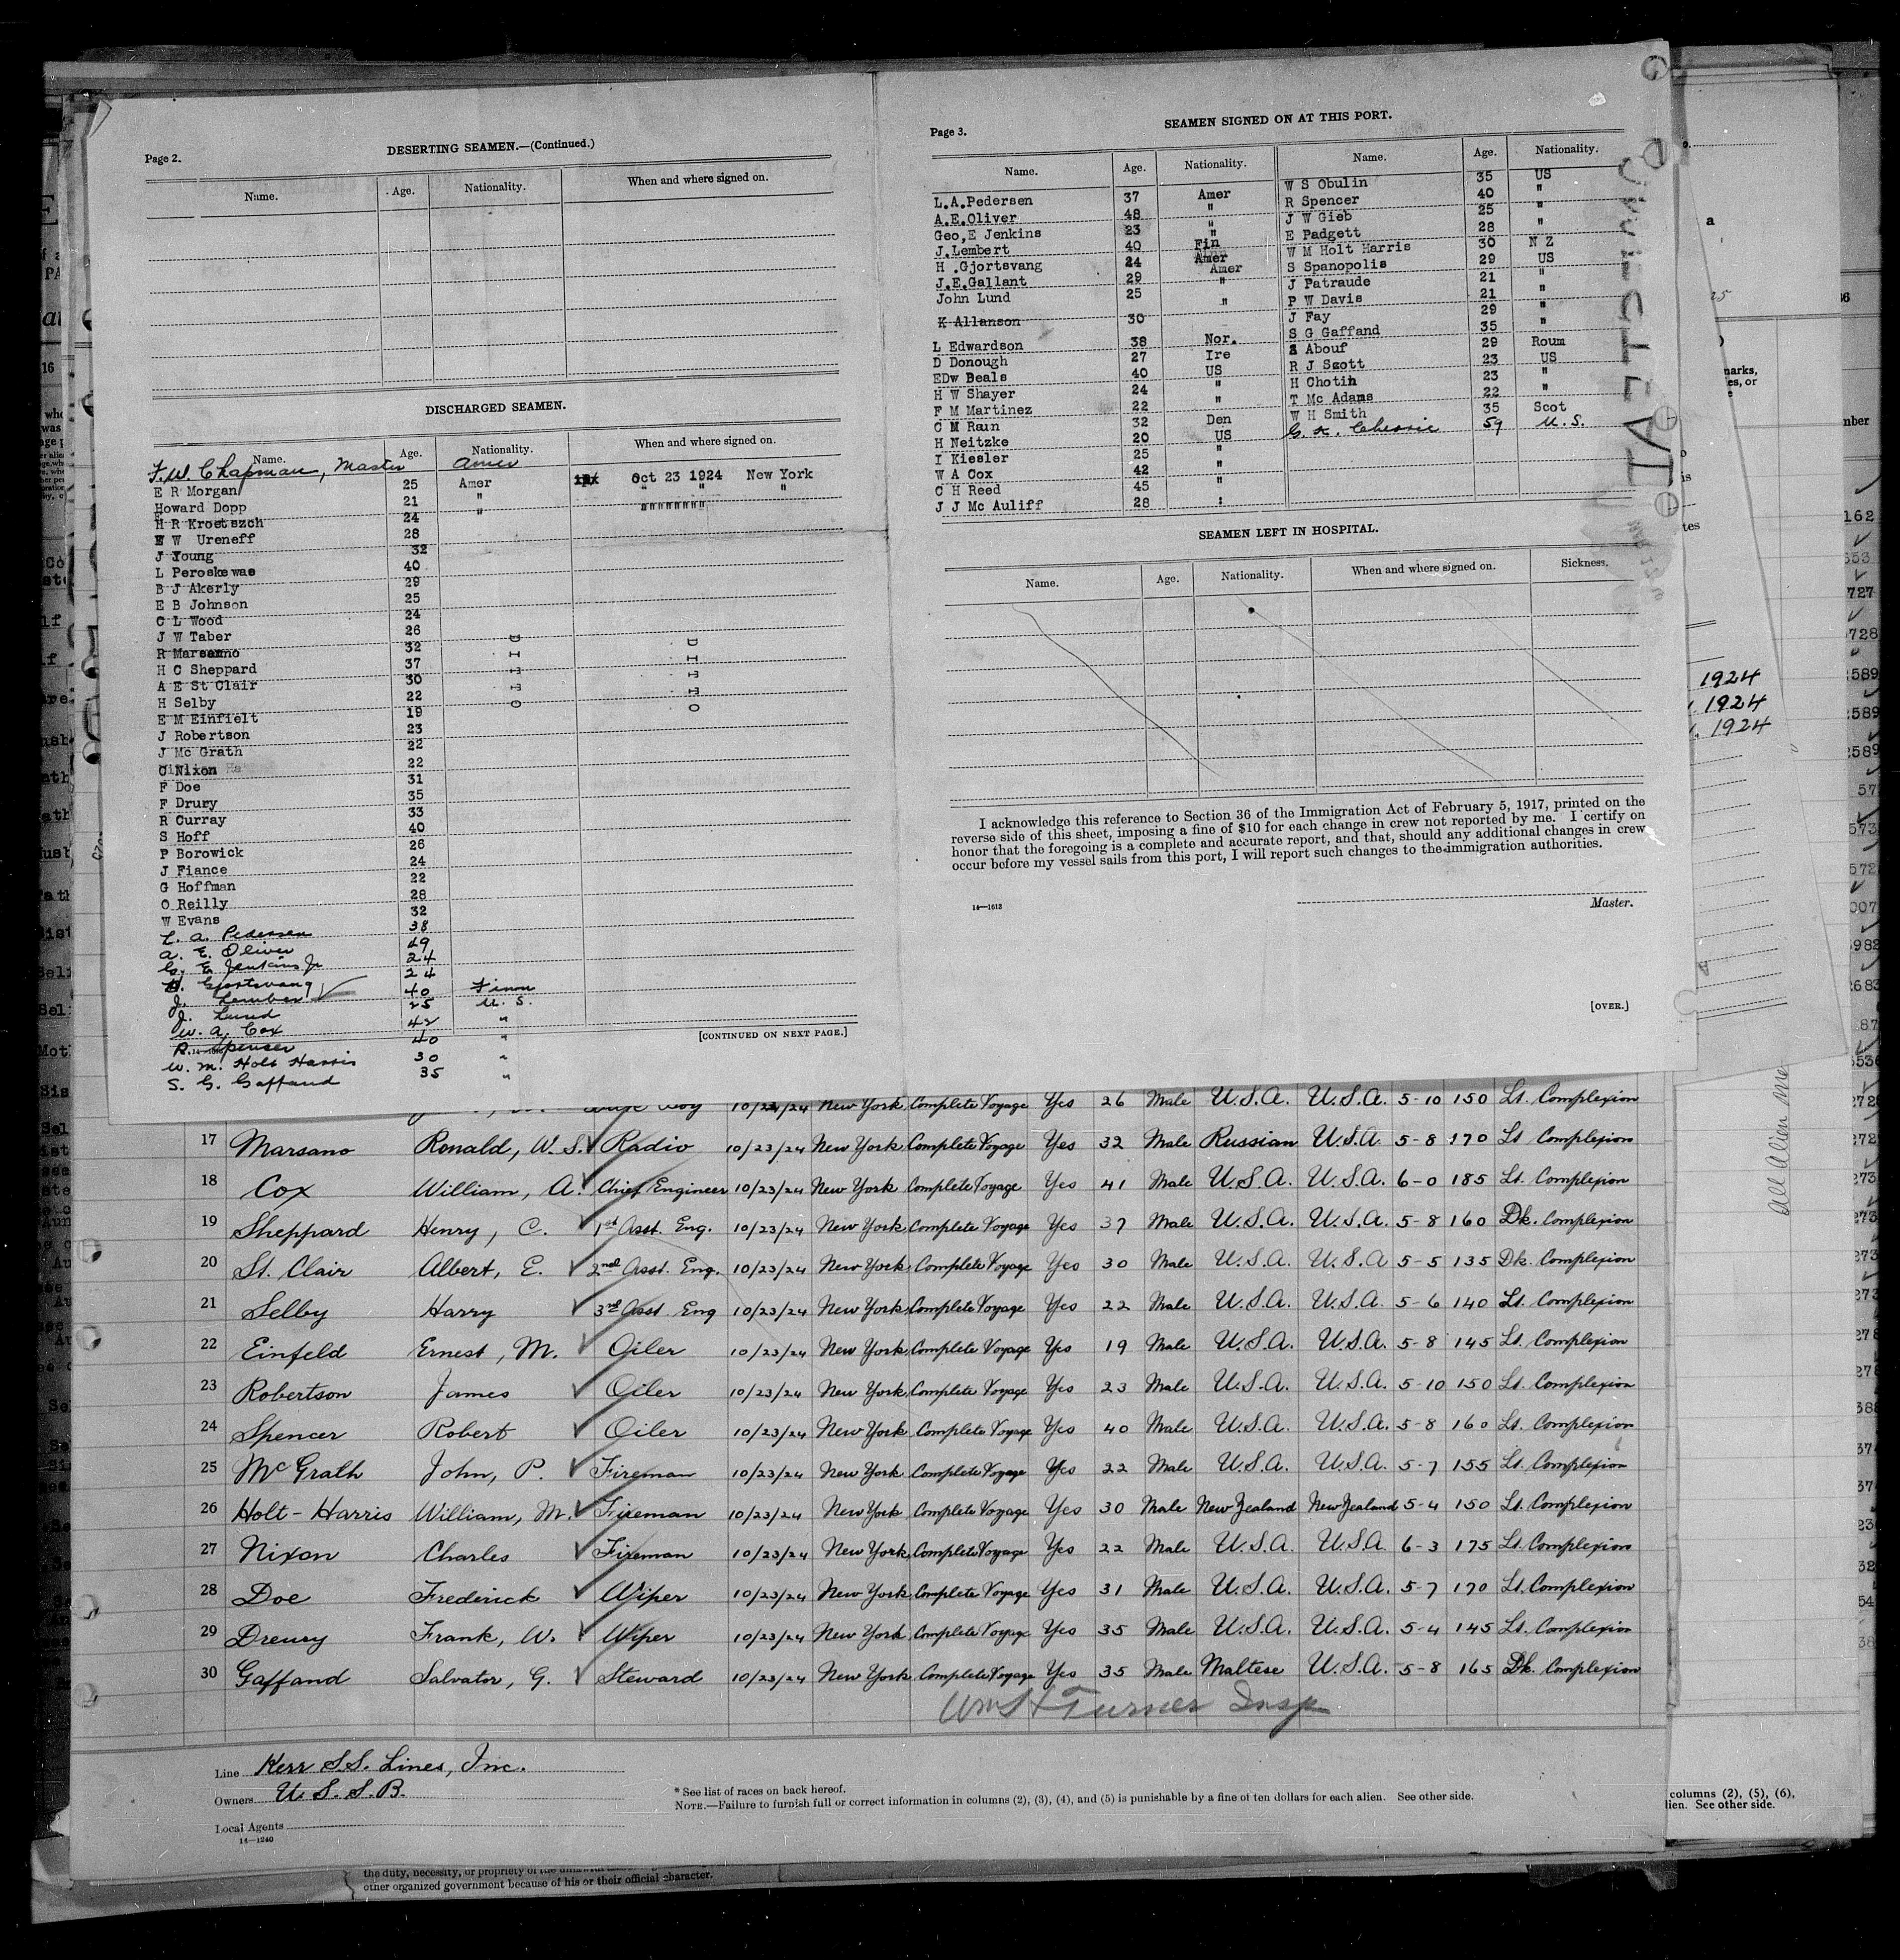 Page 2.
DESERTING SEAMEN.—(Continued.)
Name. Age. Nationality. When and where signed on.
DISCHARGED SEAMEN.
Name. Age. Nationality. When and where signed on.
F. W. Chapman, Master Amer
E R Morgan 25 Amer Oct 23 1924 New York
Howard Dopp 21 " " " "
H R Kroetszch 24 " """"""""
W Ureneff 28
J Young 32
L Peroskewas 40
B J Akerly 29
E B Johnson 25
C L Wood 24
J W Taber 26
R Marsanno 32
H C Sheppard 37
A E St Clair 30
H Selby 22
E M Einfielt 19
J Robertson 23
J Mc Grath 22
C Nixon 22
F Doe 31
F Drury 35
R Curray 33
S Hoff 40
P Borowick 26
J Fiance 24
G Hoffman 22
O Reilly 28
W Evans 32
DITTO DITTO
L. A. Pedersen 38
A. E. Oliver 49
G. E. Jenkins Jr 24
H. Gjortsvang 24
J. Lember 40 Finn
J. Lund 25 U. S.
W. A. Cox 42 "
R. Spencer 40 "
W. M. Holt Harris 30 "
S. G. Gaffand 35 "
[CONTINUED ON NEXT PAGE.]
Page 3.
SEAMEN SIGNED ON AT THIS PORT.
Name. Age. Nationality. Name. Age. Nationality.
L.A.Pedersen 37 Amer W S Obulin 35 US
A.E.Oliver 48 " R Spencer 40 "
Geo,E Jenkins 23 " J W Gieb 25 "
J.Lembert 40 Fin E Padgett 28 "
H .Gjortsvang 24 Amer W M Holt Harris 30 N Z
J.E.Gallant 29 Amer S Spanopolis 29 US
John Lund 25 " J Patraude 21 "
K Allanson 30 " P W Davis 21 "
J Fay 29 "
L Edwardson 38 Nor. S G Gaffand 35 "
D Donough 27 Ire Abouf 29 Roum
EDw Beals 40 US R J Scott 23 US
H W Shayer 24 " H Chotin 23 "
F M Martinez 22 " T Mc Adams 22 "
C M Rain 32 Den W H Smith 35 Scot
H Neitzke 20 US 59 U.S.
I Kiesler 25 "
W A Cox 42 "
C H Reed 45 "
J J Mc Auliff 28 :
SEAMEN LEFT IN HOSPITAL.
Name. Age. Nationality. When and where signed on. Sickness.
I acknowledge this reference to Section 36 of the Immigration Act of February 5, 1917, printed on the
reverse side of this sheet, imposing a fine of $10 for each change in crew not reported by me. I certify on
honor that the foregoing is a complete and accurate report, and that, should any additional changes in crew
occur before my vessel sails from this port, I will report such changes to the immigration authorities.
14—1613
Master.
[OVER.]
1924
1924
1924
All Alien Me
10/23/24 New York Complete Voyage Yes 26 Male U.S.A. U.S.A. 5-10 150 Lt. Complexion
17 Marsano Ronald, W. S. Radio 10/23/24 New York Complete Voyage Yes 32 Male Russian U.S.A. 5-8 170 Lt Complexion
18 Cox William, A. Chief Engineer 10/23/24 New York Complete Voyage Yes 41 Male U.S.A. U.S.A. 6-0 185 Lt. Complexion
19 Sheppard Henry, C. 1st Asst. Eng. 10/23/24 New York Complete Voyage Yes 37 Male U.S.A. U.S.A. 5-8 160 Dk. Complexion
20 St. Clair Albert, E. 2nd Asst. Eng. 10/23/24 New York Complete Voyage Yes 30 Male U.S.A. U.S.A 5-5 135 Dk. Complexion
21 Selby Harry 3rd Asst. Eng 10/23/24 New York Complete Voyage Yes 22 Male U.S.A. U.S.A. 5-6 140 Lt. Complexion
22 Einfeld Ernest, M. Oiler 10/23/24 New York Complete Voyage Yes 19 Male U.S.A. U.S.A. 5-8 145 Lt. Complexion
23 Robertson James Oiler 10/23/24 New York Complete Voyage Yes 23 Male U.S.A. U.S.A. 5-10 150 Lt. Complexion
24 Spencer Robert Oiler 10/23/24 New York Complete Voyage Yes 40 Male U.S.A. U.S.A. 5-8 160 Lt. Complexion
25 McGrath John, P. Fireman 10/23/24 New York Complete Voyage Yes 22 Male U.S.A. U.S.A. 5-7 155 Lt. Complexion
26 Holt-Harris William, M. Fireman 10/23/24 New York Complete Voyage Yes 30 Male New Zealand New Zealand 5-4 150 Lt. Complexion
27 Nixon Charles Fireman 10/23/24 New York Complete Voyage Yes 22 Male U.S.A. U.S.A 6-3 175 Lt. Complexion
28 Doe Frederick Wiper 10/23/24 New York Complete Voyage Yes 31 Male U.S.A. U.S.A. 5-7 170 Lt. Complexion
29 Dreury Frank, W. Wiper 10/23/24 New York Complete Voyage Yes 35 Male U.S.A. U.S.A. 5-4 145 Lt. Complexion
30 Gaffand Salvator, G. Steward 10/23/24 New York Complete Voyage Yes 35 Male Maltese U.S.A. 5-8 165 Dk. Complexion
Wm H Turner Insp
Line Kerr S.S. Lines, Inc.
Owners U. S. S. B.
Local Agents
14—1240
* See list of races on back hereof.
NOTE.—Failure to furnish full or correct information in columns (2), (3), (4), and (5) is punishable by a fine of ten dollars for each alien. See other side.
columns (2), (5), (6),
lien. See other side.
the duty, necessity, or propriety of the
other organized government because of his or their official character.